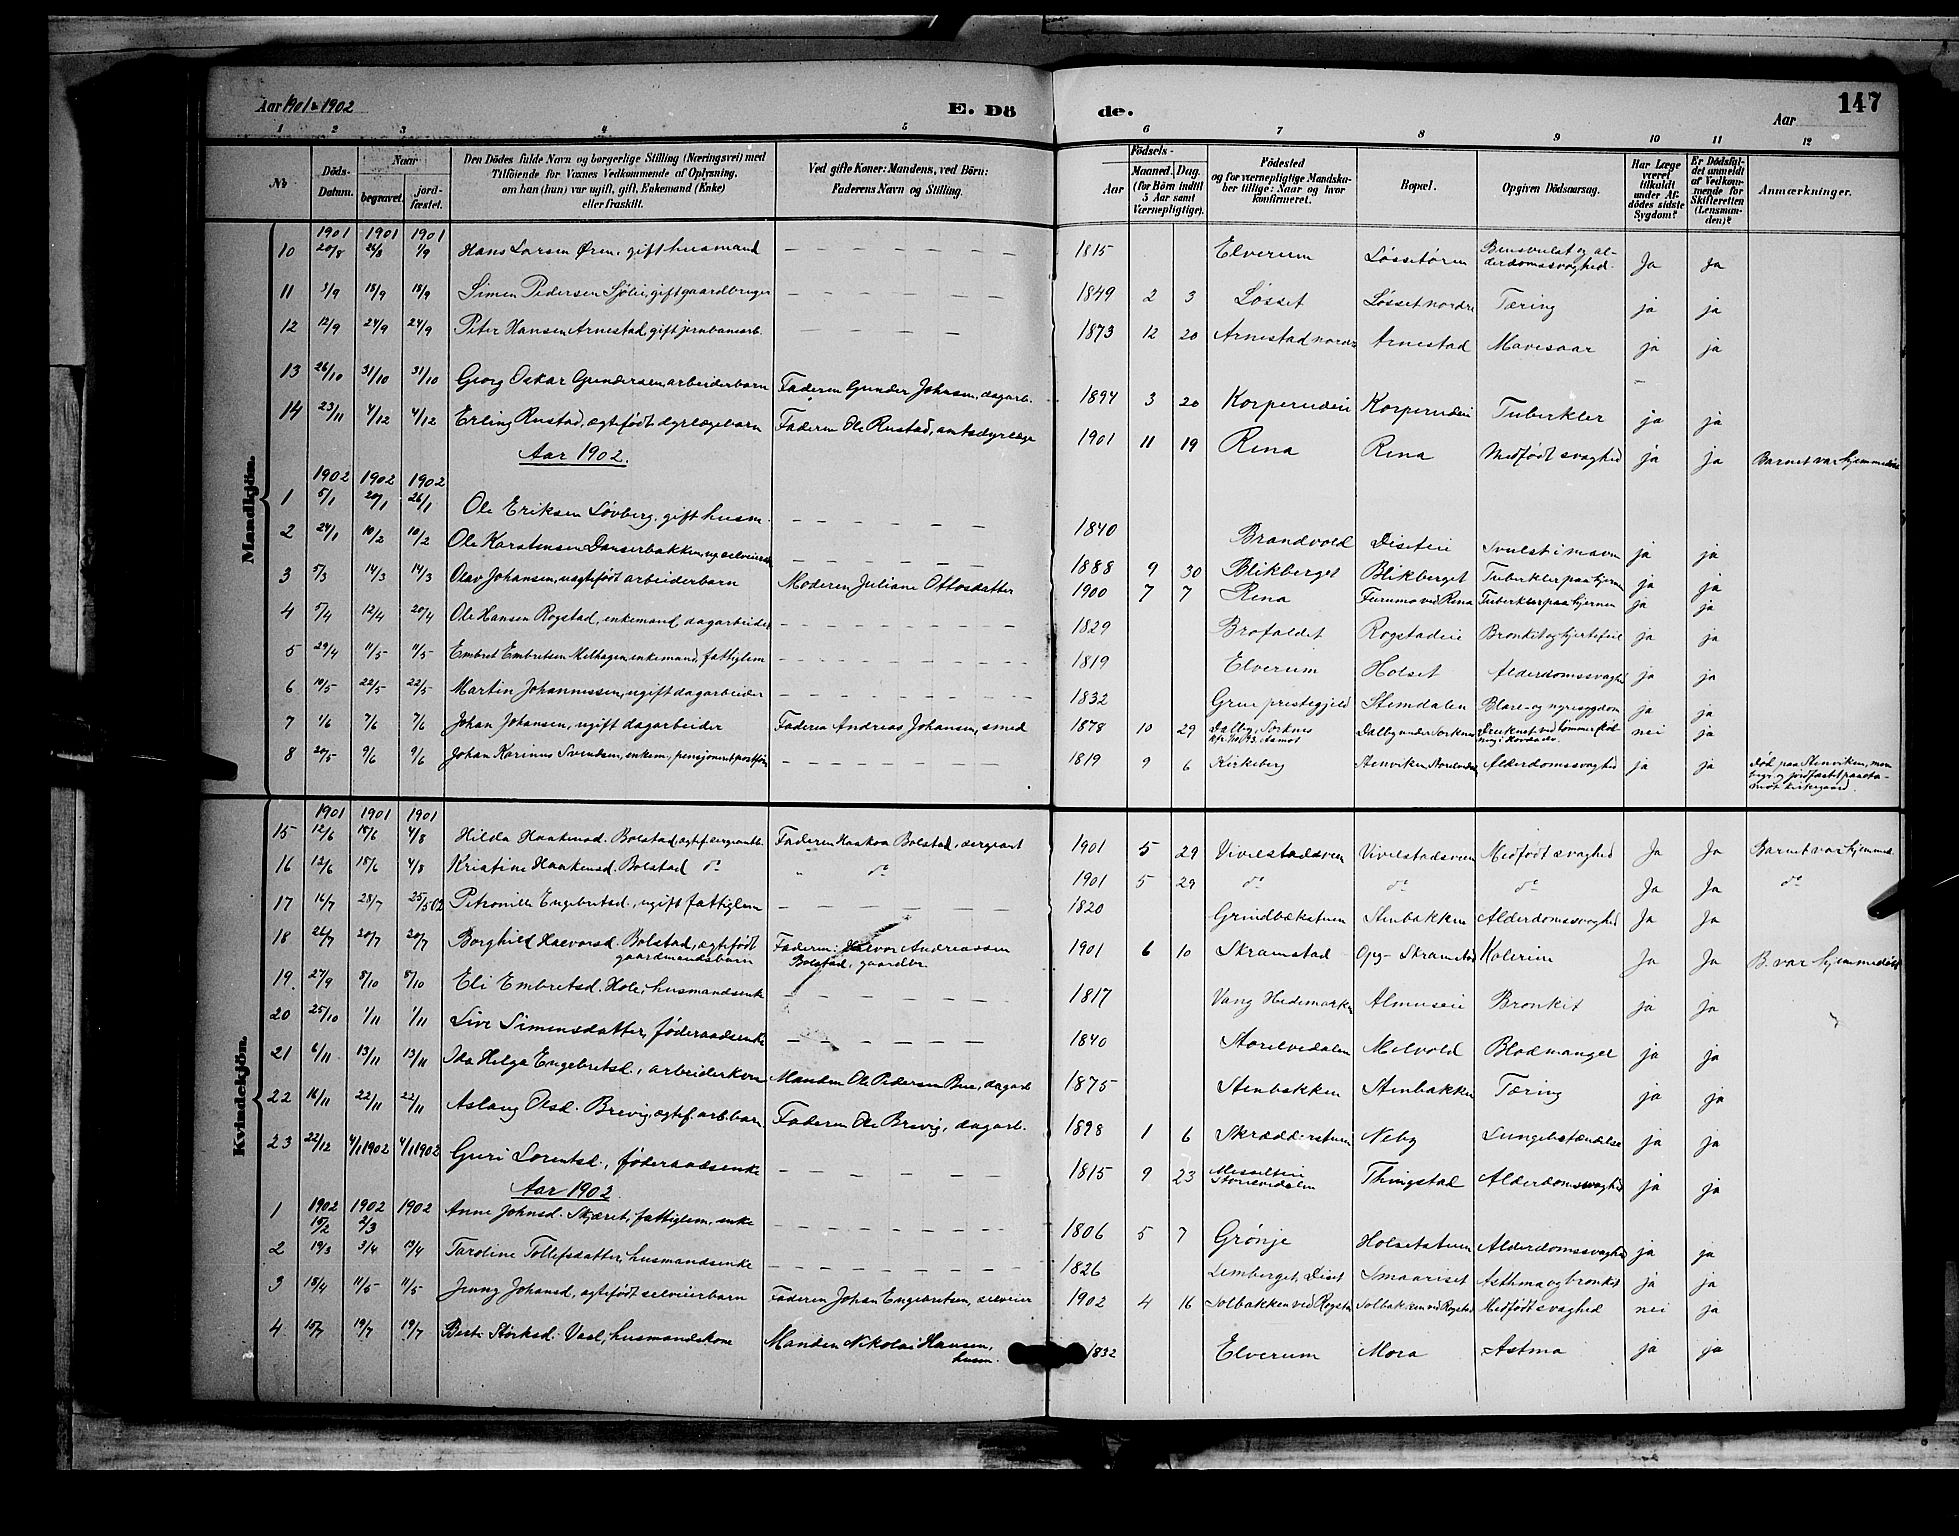 Aar 1901 & 1902 E. Dö de. Aar 147
1 2 3 4 5 6 7 8 9 10 11 12
No. Döds-Datum. Naar begravet. jord-fæstet. Den Dödes fulde Navn og borgerlige Stilling (Næringsvei) med Tilföiende for Voxnes Vedkommende af Oplysning, om han (hun) var ugift, gift, Enkemand (Enke) eller fraskilt. Ved gifte Koner: Mandens, ved Börn: Faderens Navn og Stilling. Födsels- Aar Maaned. Dag. (for Börn indtil 5 Aar samt Værnepligtige). Födested og for værnepligtige Mandskaber tillige: Naar og hvor konfirmeret. Bopæl. Opgiven Dödsaarsag. Har Læge været tilkaldt under Afdödes sidste Sygdom? Er Dödsfaldet anmeldt af Vedkommende for Skifteretten (Lensmanden)? Anmærkninger.
Mandkjön.
1901 1901 1901
10 20/8 26/8 1/9 Hans Larsen Øren, gift husmand — — — 1815 Elverum Løssetøren Bensvulst og alderdomssvaghed. Ja Ja
11 3/9 18/9 18/9 Simen Pedersen Sjølie, gift gaardbruger — — — 1849 2 3 Løsset Løsset nordre Tæring ja ja
12 12/9 24/9 24/9 Peter Hansen Arnestad, gift jernbanearb. — — — 1873 12 20 Arnestad nordr Arnestad Mavesaar ja ja
13 26/10 31/10 31/10 Georg Oskar Gundersen arbeiderbarn Faderen Gunder Johnsen, dagarb. 1894 3 20 Korperudeii Korperudeii Tuberkler ja ja
14 23/11 4/12 4/12 Erling Rustad, ægtefødt dyrlægebarn Faderen Ole Rustad, amtsdyrlæge 1901 11 19 Rena Rena Medfødt svaghed ja ja Barnet var hjemmedøbt
Aar 1902.
1902 1902 1902
1 5/1 20/1 26/1 Ole Eriksen Løvberg, gift husm. — — — 1840 Brandvold Diseteie Svulst i maven ja ja
2 24/1 10/2 10/2 Ole Karstensen Danserbakken, ug. selveiers — — — 1888 9 30 Blikberget Blikberget Tuberkler paa hjernen ja ja
3 5/3 14/3 14/3 Olav Johansen, uægtefødt arbeiderbarn Moderen Juliane Ottosdatter 1900 7 7 Rena Furumo ved Rena Tuberkler paa hjernen ja ja
4 5/4 12/4 20/4 Ole Hansen Rogstad, enkemand, dagarbeider — — — 1829 Brofaldet Rogstadeie Bronkit og hjertefeil ja ja
5 29/4 11/5 11/5 Embret Embretsen Melhagen enkemand, fattiglem — — — 1819 Elverum Holset Alderdomssvaghed ja ja
6 10/5 22/5 22/5 Martin Johannessen, ugift dagarbeider — — — 1832 Grue prestegjeld Stemdalen Blære- og nyresygdom ja ja
7 1/6 7/6 7/6 Johan Johansen, ugift dagarbeider Faderen Andreas Johansen, smed 1878 10 29 Dalby, Sorknes Dalby under Sorknes Druknet ved tømmerfløtning nei ja
8 20/5 9/6 9/6 Johan Karinus Svendsen, enkem., pensjoneret postfør 1819 9 6 Kirkeberg Stenviken Alderdomssvaghed ja ja Død paa Stenviken, men begr. og jordfæstet paa Aamot kirkegaard.
Kvindekjön.
1901 1901 1901
15 12/6 18/6 4/8 Hilda Haakensd. Bolstad, ægtef. sergeantb. Faderen Haakon Bolstad, sergeant 1901 5 29 Vivelstadsveen Vivelstadsveen Medfødt svaghed Ja Ja Barnet var hjemmed.
16 12/6 18/6 4/8 Kristine Haakensd. Bolstad do " do 1901 5 29 do do do Ja Ja do
17 16/7 28/7 25/5 02 Petronille Engebretsd., ugift fattiglem — — — 1820 Grindbækstuen Stenbakken Alderdomssvaghed Ja Ja
18 26/7 20/7 20/7 Borghild Halvorsd. Bolstad, ægtefødt gaardmandsbarn Faderen: Halvor Andreassen Bolstad, gaardbr. 1901 6 10 Skramstad Opg- Skramstad Kolerine Ja Ja B. var hjemmedøbt
19. 27/9 8/10 8/10 Eli Embretsd. Hole, husmandsenke — — — 1817 Vang Hedemarken Almuseie Bronkit ja ja
20 25/10 1/11 1/11 Live Simensdatter, føderaadsenke — — — 1840 Storelvedalen Melvold Blodmangel ja ja
21 6/11 13/11 13/11 Ida Helga Engebretsd., arbeiderkone Manden Ole Pedersen Bue, dagarb 1875 Stenbakken Stenbakken Tæring ja ja
22 16/11 22/11 22/11 Aslaug Olsd. Brevig, ægtef. arb. barn Faderen Ole Brevig, dagarb. 1898 1 6 Skrædderstuen Neby Lungebetændelse ja ja
23 22/12 4/1 1902 4/1 1902 Guri Lorentsd., føderaadsenke — — — 1815 9 23 Messelteie Storelvedalen Thingstad Alderdomssvaghed ja ja
Aar 1902.
1902 1902 1902
1 15/2 2/3 Anne Johnsd. Skjæret, fattiglem, enke — — — 1806 5 7 Grønje Holsetstuen Alderdomssvaghed ja ja
2 19/3 3/4 13/4 Taroline Tollefsdatter, husmandsenke — — — 1826 Lemberget, Diset Smaariset Asthma og bronkit ja ja
3 18/4 11/5 11/5 Jenny Johansd, ægtefødt selveierbarn Faderen Johan Engebretsen, selveier 1902 4 16 Solbakken ved Rogsta Solbakken ved Rogstad Medfødt svaghed nei ja
4 10/7 19/7 19/7 Berte Størksd. Vasl, husmandskone Manden Nikolai Hansen, husm. 1832 Elverum Mora Astma ja ja